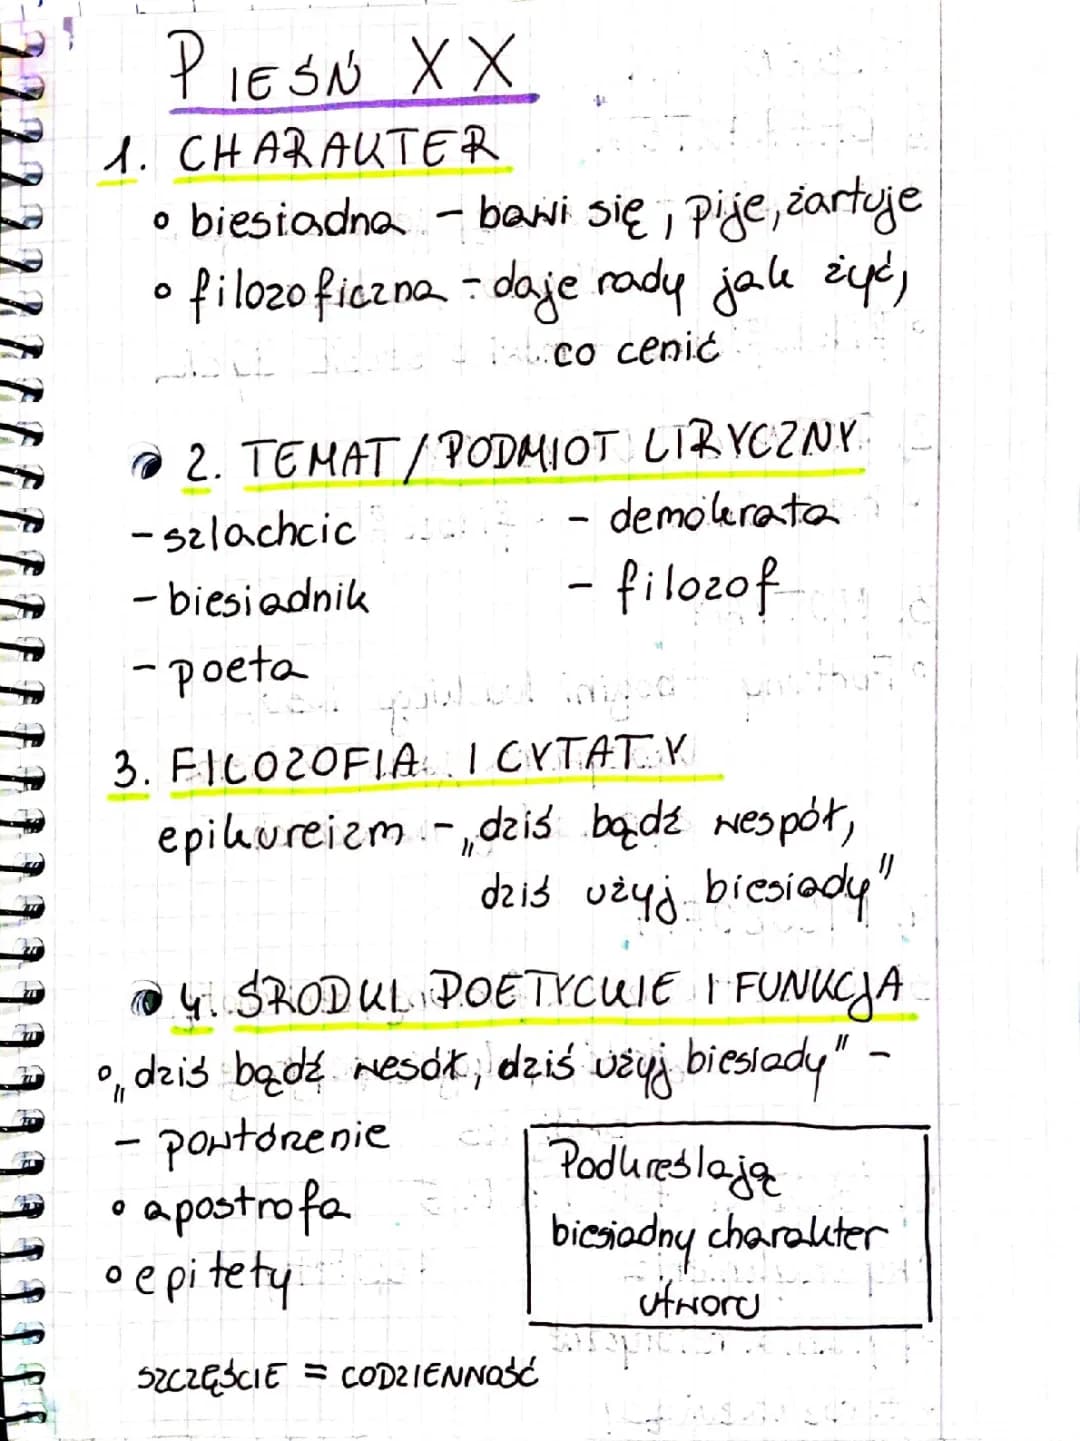 PIEŚŃ XX
1. CHARAKTER
• biesiadna - bawi się, pije, żartuje
• filozoficzna - daje rady jak żyć,
co cenić
2. TEMAT / PODMIOT LIRYCZNY
- szlachcic - demokrata
- biesiadnik - filozof
- poeta
3. FILOZOFIA I CYTATY
epikureizm - „dziś bądź wespół,
dziś użyj biesiady"
4. ŚRODKI POETYCKIE I FUNKCJA
• „dziś bądź wesół, dziś użyj biesiady" -
- powtórzenie
• apostrofa
• epitety
Podkreślają
biesiadny charakter
utworu
SZCZĘŚCIE = CODZIENNOŚĆ